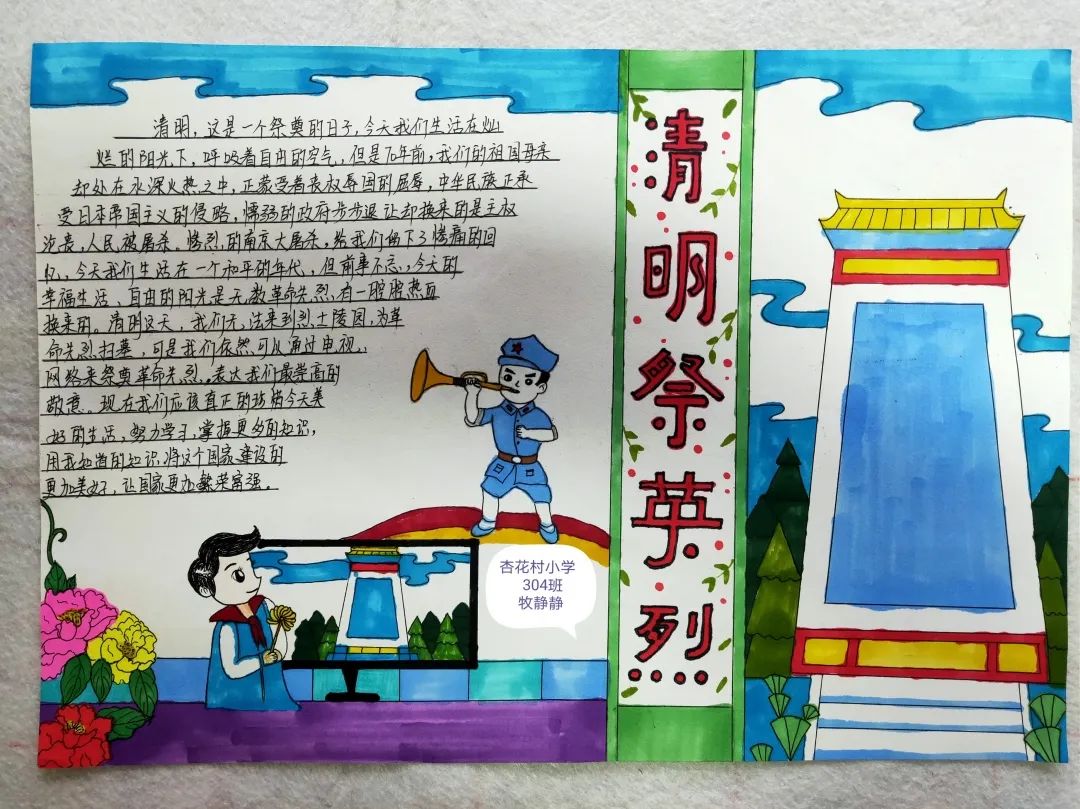 清明，这是一个祭奠的日子，今天我们生活在灿
烂的阳光下，呼吸着自由的空气，但是70年前，我们的祖国母亲
却处在水深火热之中，正蒙受着丧权辱国的屈辱，中华民族正承
受日本帝国主义的侵略，懦弱的政府步步退让却换来的是主权
沦丧，人民被屠杀。惨烈的南京大屠杀，给我们留下了惨痛的回
忆，今天我们生活在一个和平的年代，但前事不忘，今天的
幸福生活、自由的阳光是无数革命先烈有一腔腔热血
换来的。清明这天，我们无法来到烈士陵园，为革
命先烈扫墓，可是我们依然可以通过电视、
网络来祭奠革命先烈，表达我们最崇高的
敬意。现在我们应该真正的珍惜今天美
好的生活，努力学习，掌握更多的知识，
用我知道的知识将这个国家建设的
更加美好，让国家更加繁荣富强。
杏花村小学
304班
牧静静
清明祭英烈